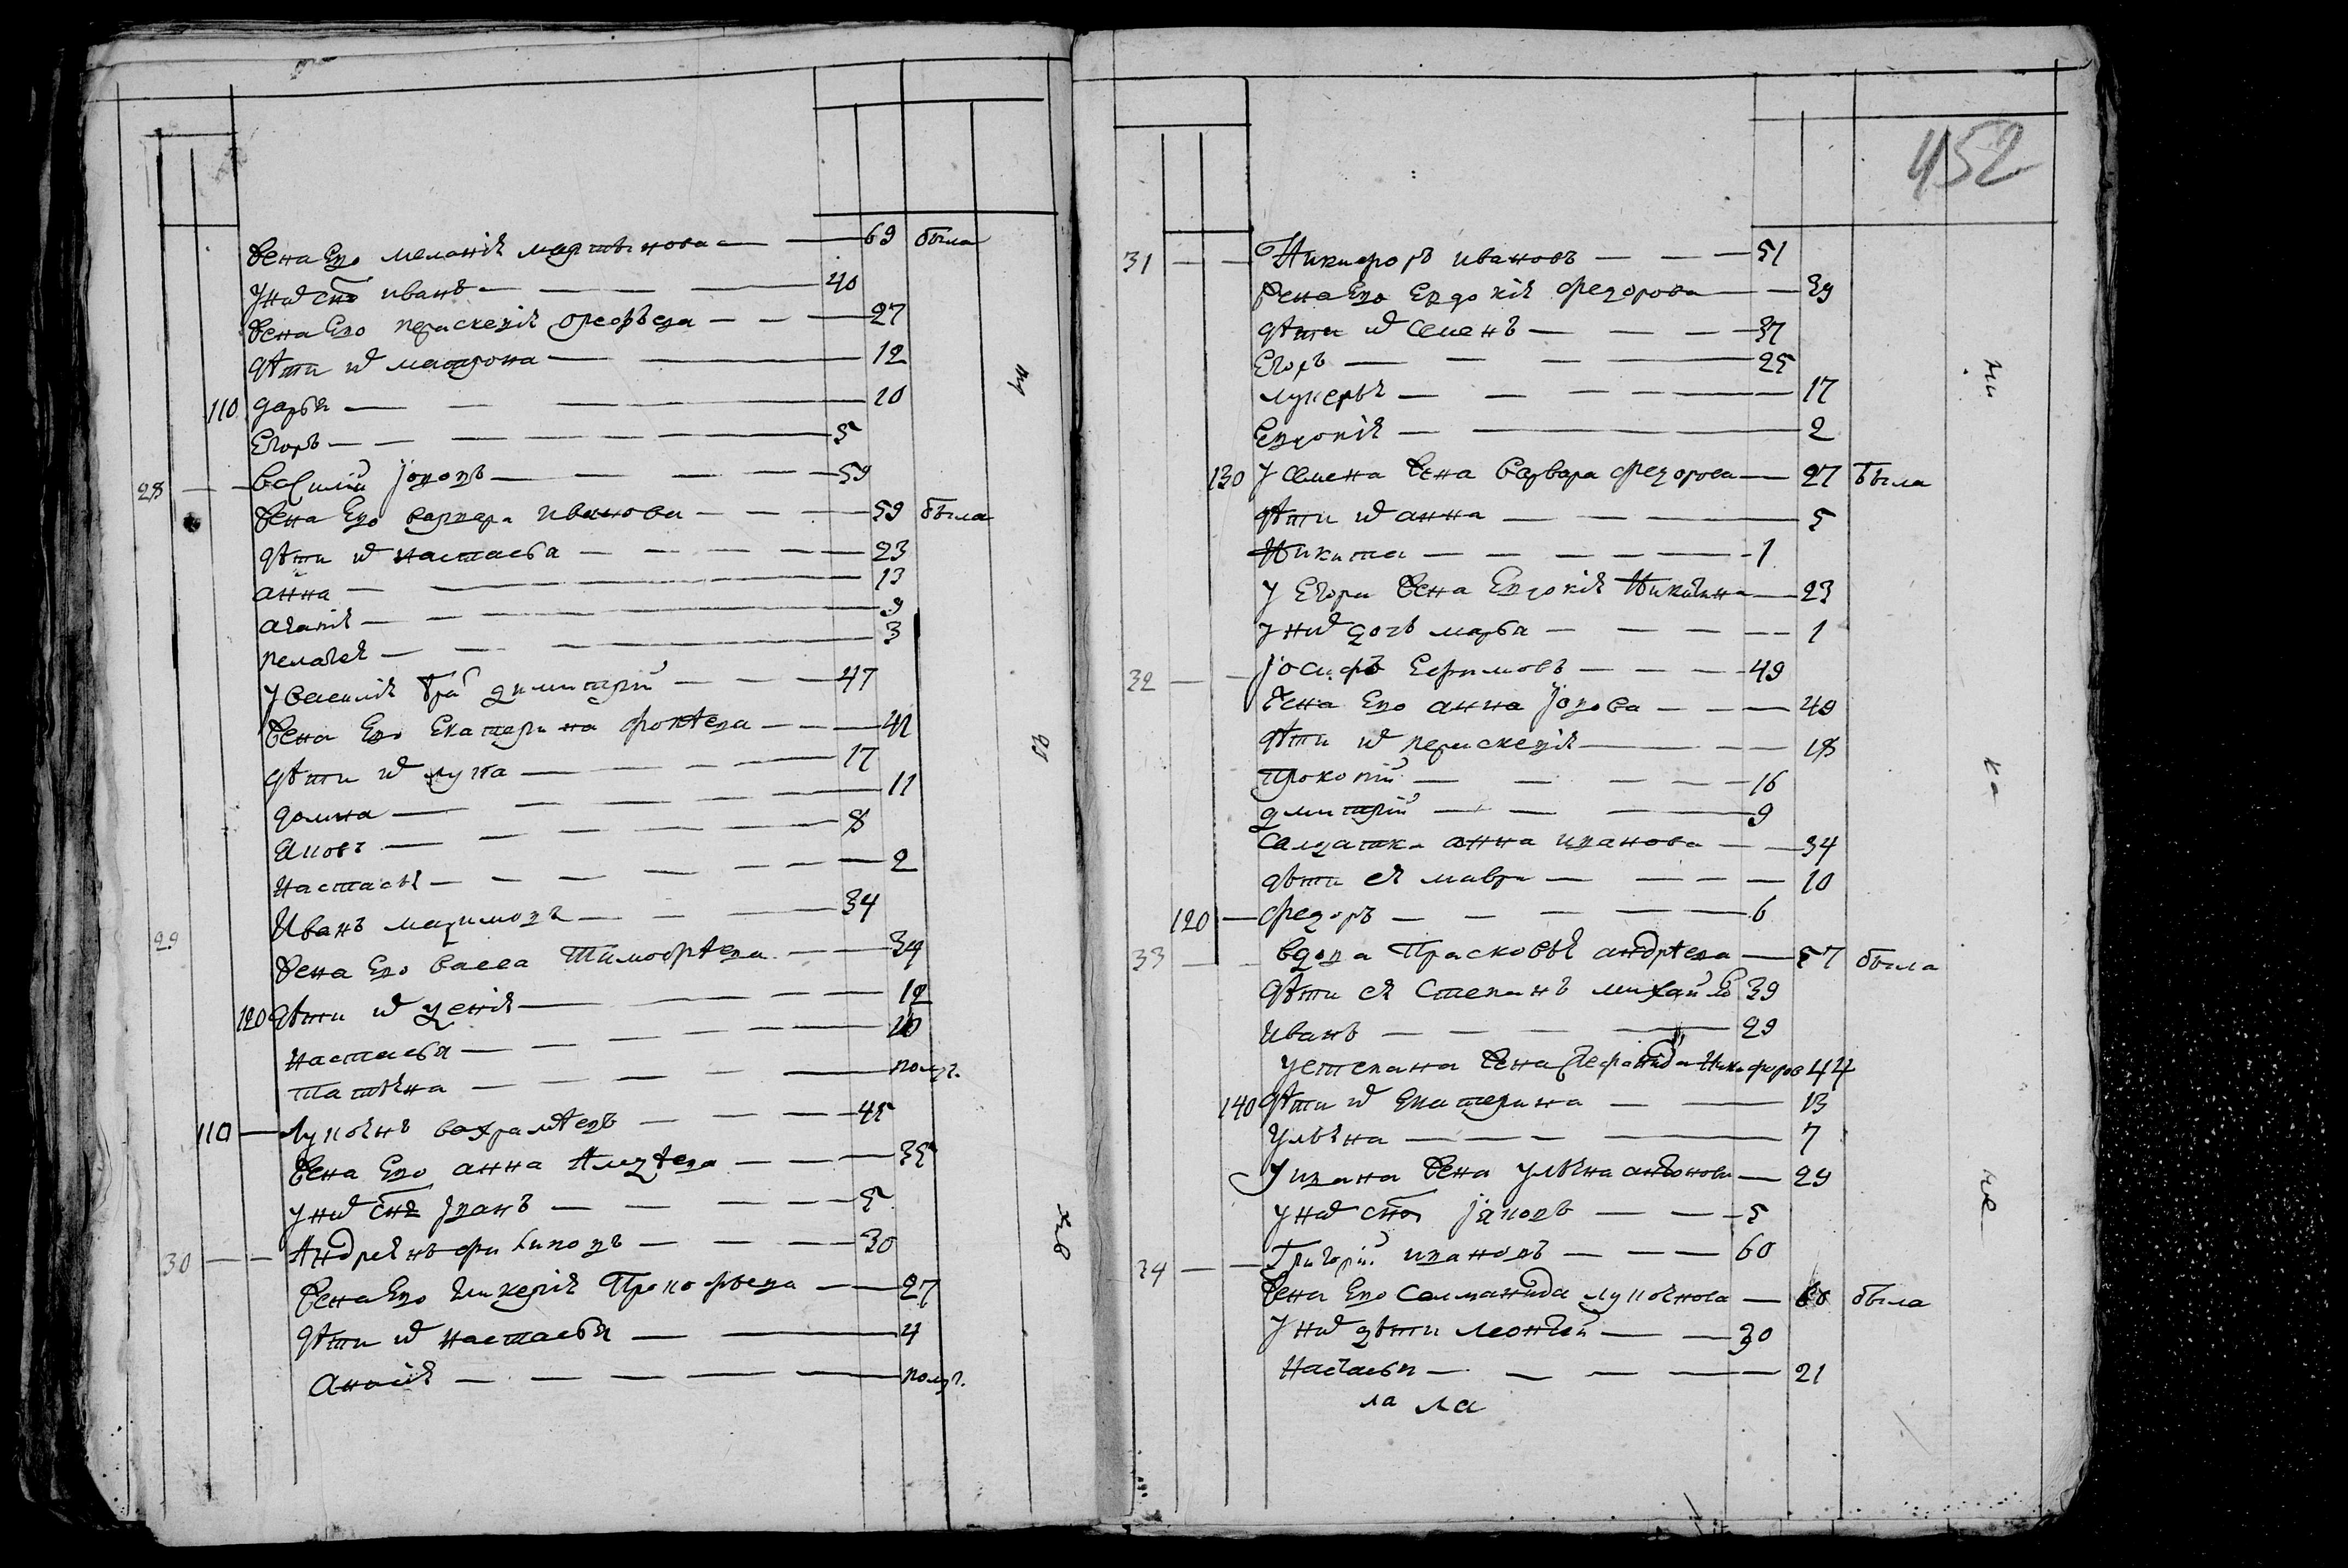 жена Его меланія мартынова — 69 была
у них сн̃ъ иванъ — 40
жена Его параскевія — 27
дѣти их матрона — 12
110 дарья — 10
Егоръ — 5
28 — василій іововъ — 59
жена Его варвара иванова — 59 была
дѣти их настасья — 23
анна — 13
агапія — 9
пелагея — 3
у василія бра димитрій — 47
жена Его Екатерина фокѣева — 41
дѣти их лука — 17
домна — 11
яковъ — 8
настасья — 2
29 Иванъ — 34
жена Его васса Тимофѣева — 34
120 дѣти их — 12
настасья — 10
татьяна — полуг.
110 — лукоянъ вахрамѣевъ — 45
жена Его анна — 35
у них сн̃ъ іванъ — 5
30 — Андреянъ филиповъ — 30
жена Его гликерія Прокофьева — 27
дѣти их настасья — 4
анисія — полуг.
452
31 — Никифоръ ивановъ — 51
жена Его Евдокія федорова — 59
дѣти их семенъ — 37
Егоръ — 25
лукерья — 17
Евдокія — 2
130 у семена жена варвара федорова — 27 была
дѣти их анна — 5
Никита — 1
у Егора жена Евдокія Никитина — 23
у них дочь марья — 1
32 — іосифъ Ефимовъ — 49
жена Его анна іовова — 49
дѣти их параскевія — 18
Прокопій — 16
дмитрій — 9
салдатка анна иванова — 34
дѣти ея мавра — 10
120 — федоръ — 6
33 — вдова Прасковья андрѣева — 57 была
дѣти ея Степанъ михайло 39
Иванъ — 29
у степана жена Никифоров 44
140 дѣти их Екатерина — 13
Ульяна — 7
У ивана жена ульяна антонова — 29
у них сн̃ъ іяковъ — 5
34 — Григорій ивановъ — 60
жена Его Саламанида лукоянова — 60 была
У них дѣти леонтей — 30
настасья — 21
ла ла